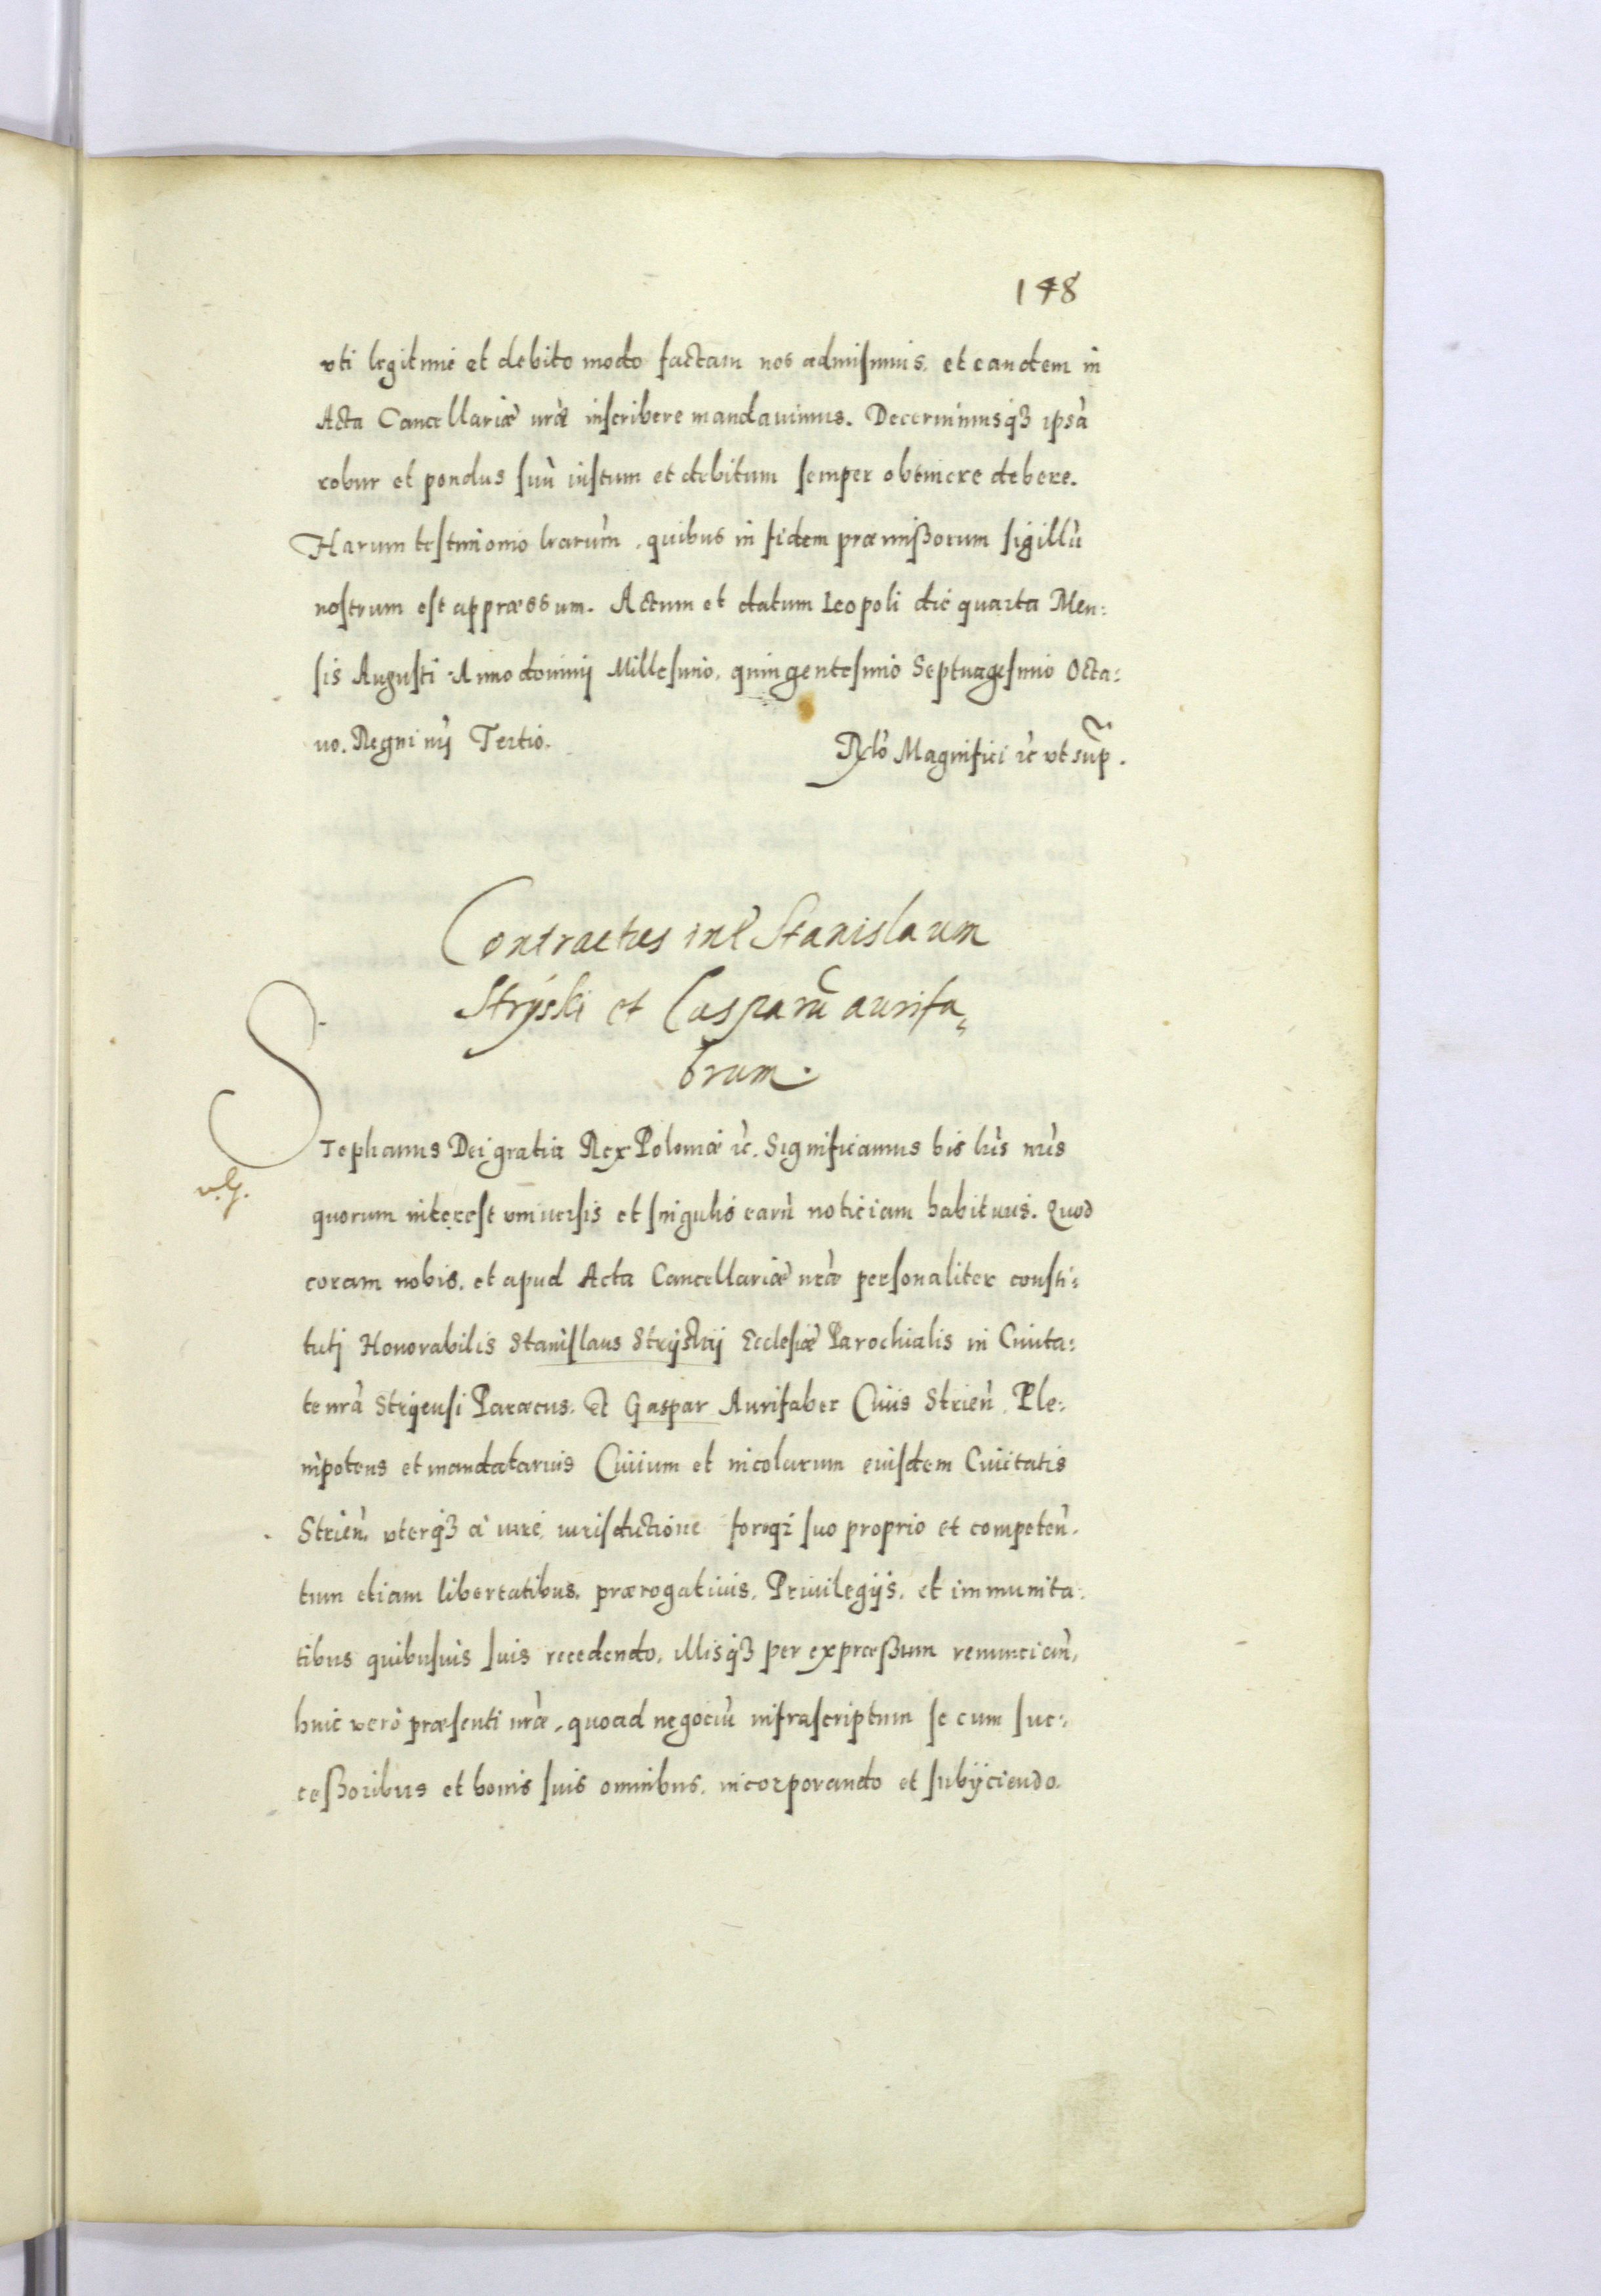 148
vti legitime et debito modo factam nos admisimus, et eandem in
Acta Cancellariæ nr̃æ inscribere mandauimus. Decernimusq₃ ipsã
robur et pondus suũ iustum et debitum semper obtinere debere.
Harum testimonio lrarũm, quibus in fidem præmißorum sigillũ
nostrum est appræssum. Actum et datum Leopoli die quarta Men:
sis Augusti Anno dominij Millesimo, quingentesimo Septuagesimo Octa:
uo. Regni nr̃j Tertio.
Rel̃o Magnifici ꝛc̃ vt sup̃.
Contractus int̃ Stanislaum
Stryski et Casparũ aurifa„
brum.
STephanus Dei gratia Rex Poloniæ ꝛc̃. Significamus his lr̃is nr̃is
quorum interest vniuersis et singulis earũ noticiam habituris. Quod
coram nobis, et apud Acta Cancellariæ nr̃æ personaliter consti:
tutj Honorabilis Stanislaus Strijskij Ecclesiæ Parochialis in Ciuita:
te nr̃a Strijensi Paræcus. Et Gaspar Aurifaber Ciuis Strieñ. Ple:
nipotens et mandatarius Ciuium et incolarum eiusdem Ciuitatis
Strieñ, vterq₃ à iure, iurisdictione foroq₃ suo proprio et competeñ.
tum etiam libertatibus, prærogatiuis, Priuilegijs, et immunita:
tibus quibusuis suis recedendo, illisq₃ per expræßum renunciañ,
huic vero præsenti nr̃æ, quoad negociũ infrascriptum se cum suc:
ceßoribus et bonis suis omnibus, incorporando et subijciendo.